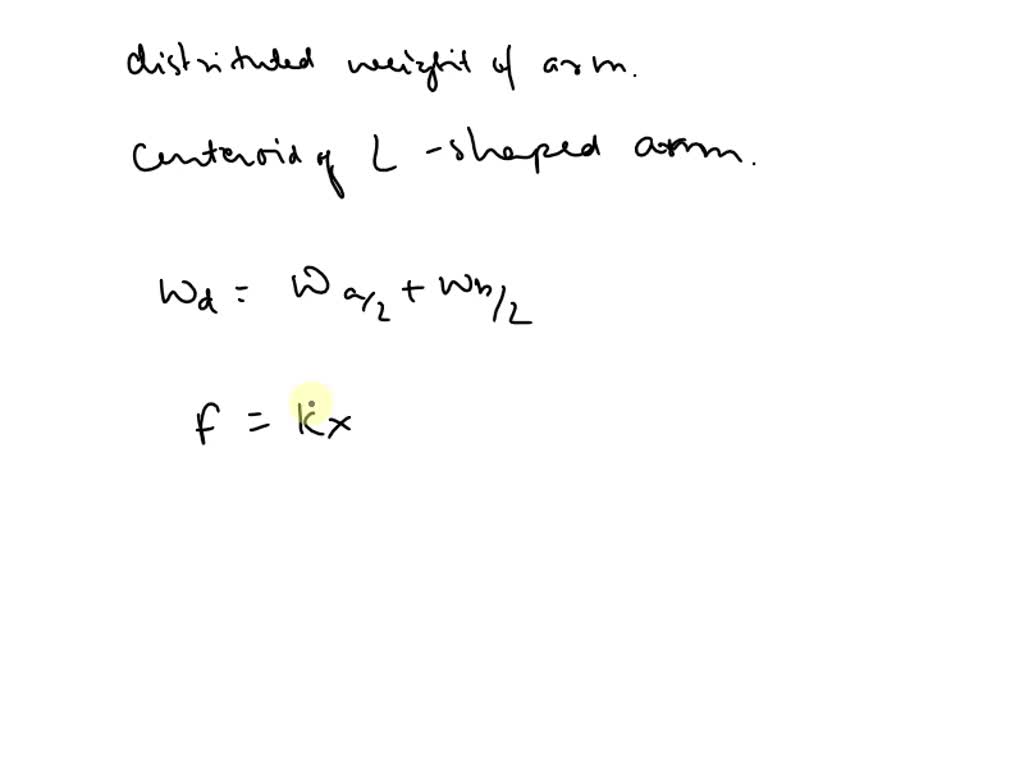 distrituted weight of arm.
Centeroid of L-shaped arm.
Wd = W a/2 + Wb/2
F = kx